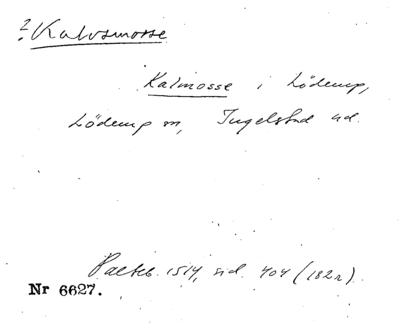 ? Kalvsmosse
Kalmosse i Löderup,
Löderup sn, Ingelstad hd.
Palteb. 1514, sid. 404 (182r).
Nr 6627.